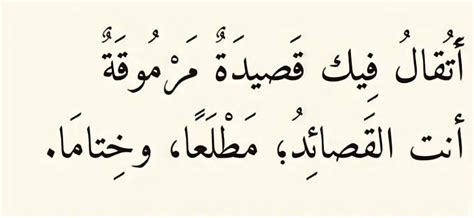 أَتُقالُ فِيك قَصيدَةٌ مَرْمُوقَةٌ
أنت القَصائِدُ؛ مَطْلَعًا، وخِتامَا.